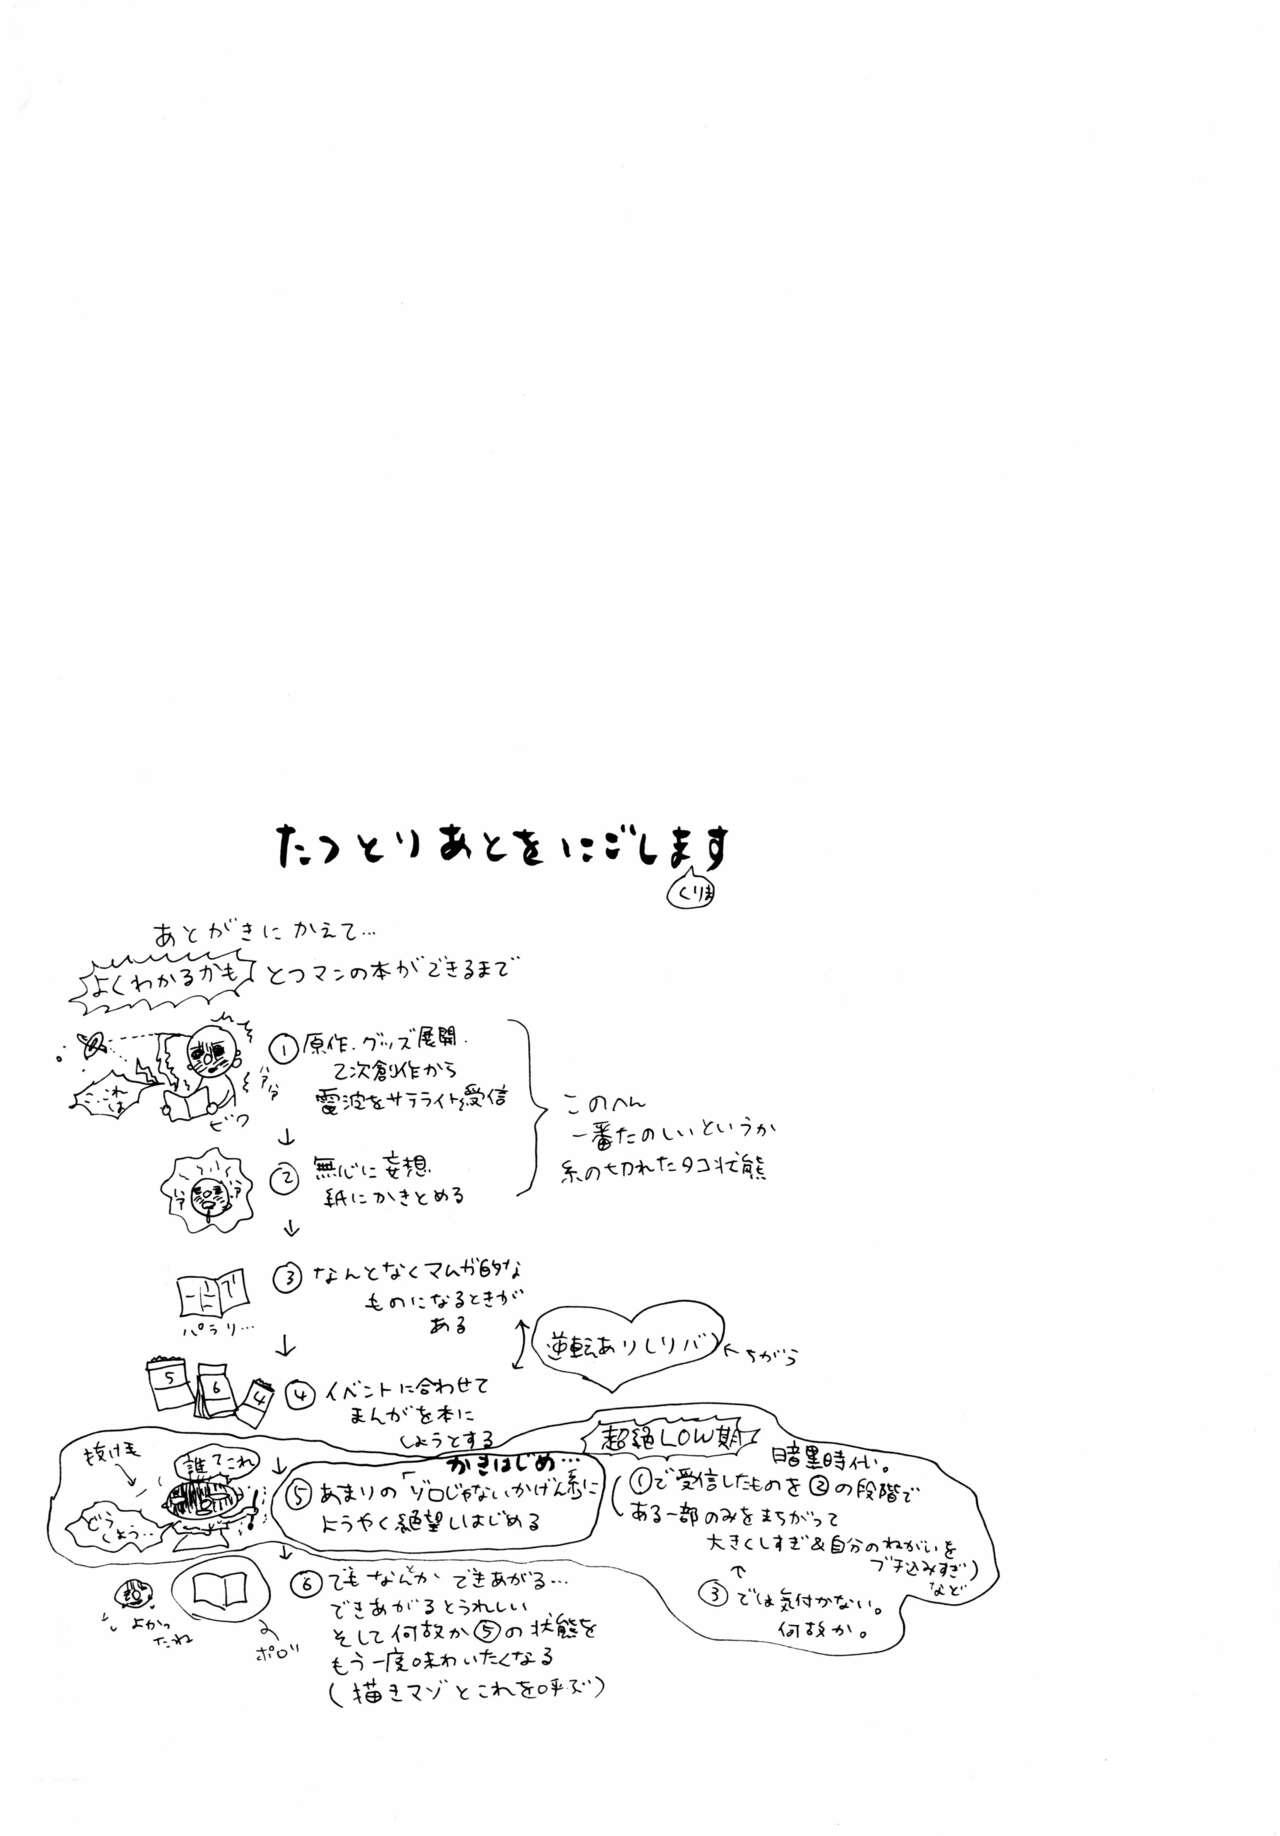 たつとりあとをにごします
くりま
あとがきにかえて…
よくわかるかも
とつマンの本ができるまで
①原作、グッズ展開、
乙次創作から
電波をサテライト受信
こ、これ
は
ビク
ハァハァ
↓
このへん
一番たのしいというか
糸の切れたタコ状態
②無心に妄想
紙にかきとめる
ハァ
ハァ
↓
③なんとなくマムガ的な
ものになるときが
ある
パラリ…
↓
逆転ありしリバ
←ちがう
5
6
4
④イベントに合わせて
まんがを本に
しようとする
抜け毛
誰てこれ
どう
しよう…
↓
かきはじめ…
⑤あまりの「ゾロじゃないかげん系」に
ようやく絶望しはじめる
超絶LOW期
暗黒時代。
(①で受信したものを②の段階で
ある一部のみをまちがって
大きくしすぎ&自分のねがいを
ブチ込みすぎ)
など
↑
③では気付かない。
何故か。
↓
⑥でもなんとかできあがる…
できあがるとうれしい
そして何故か⑤の状態を
もう一度味わいたくなる
(描きマゾとこれを呼ぶ)
よかっ
たね
ポロリ